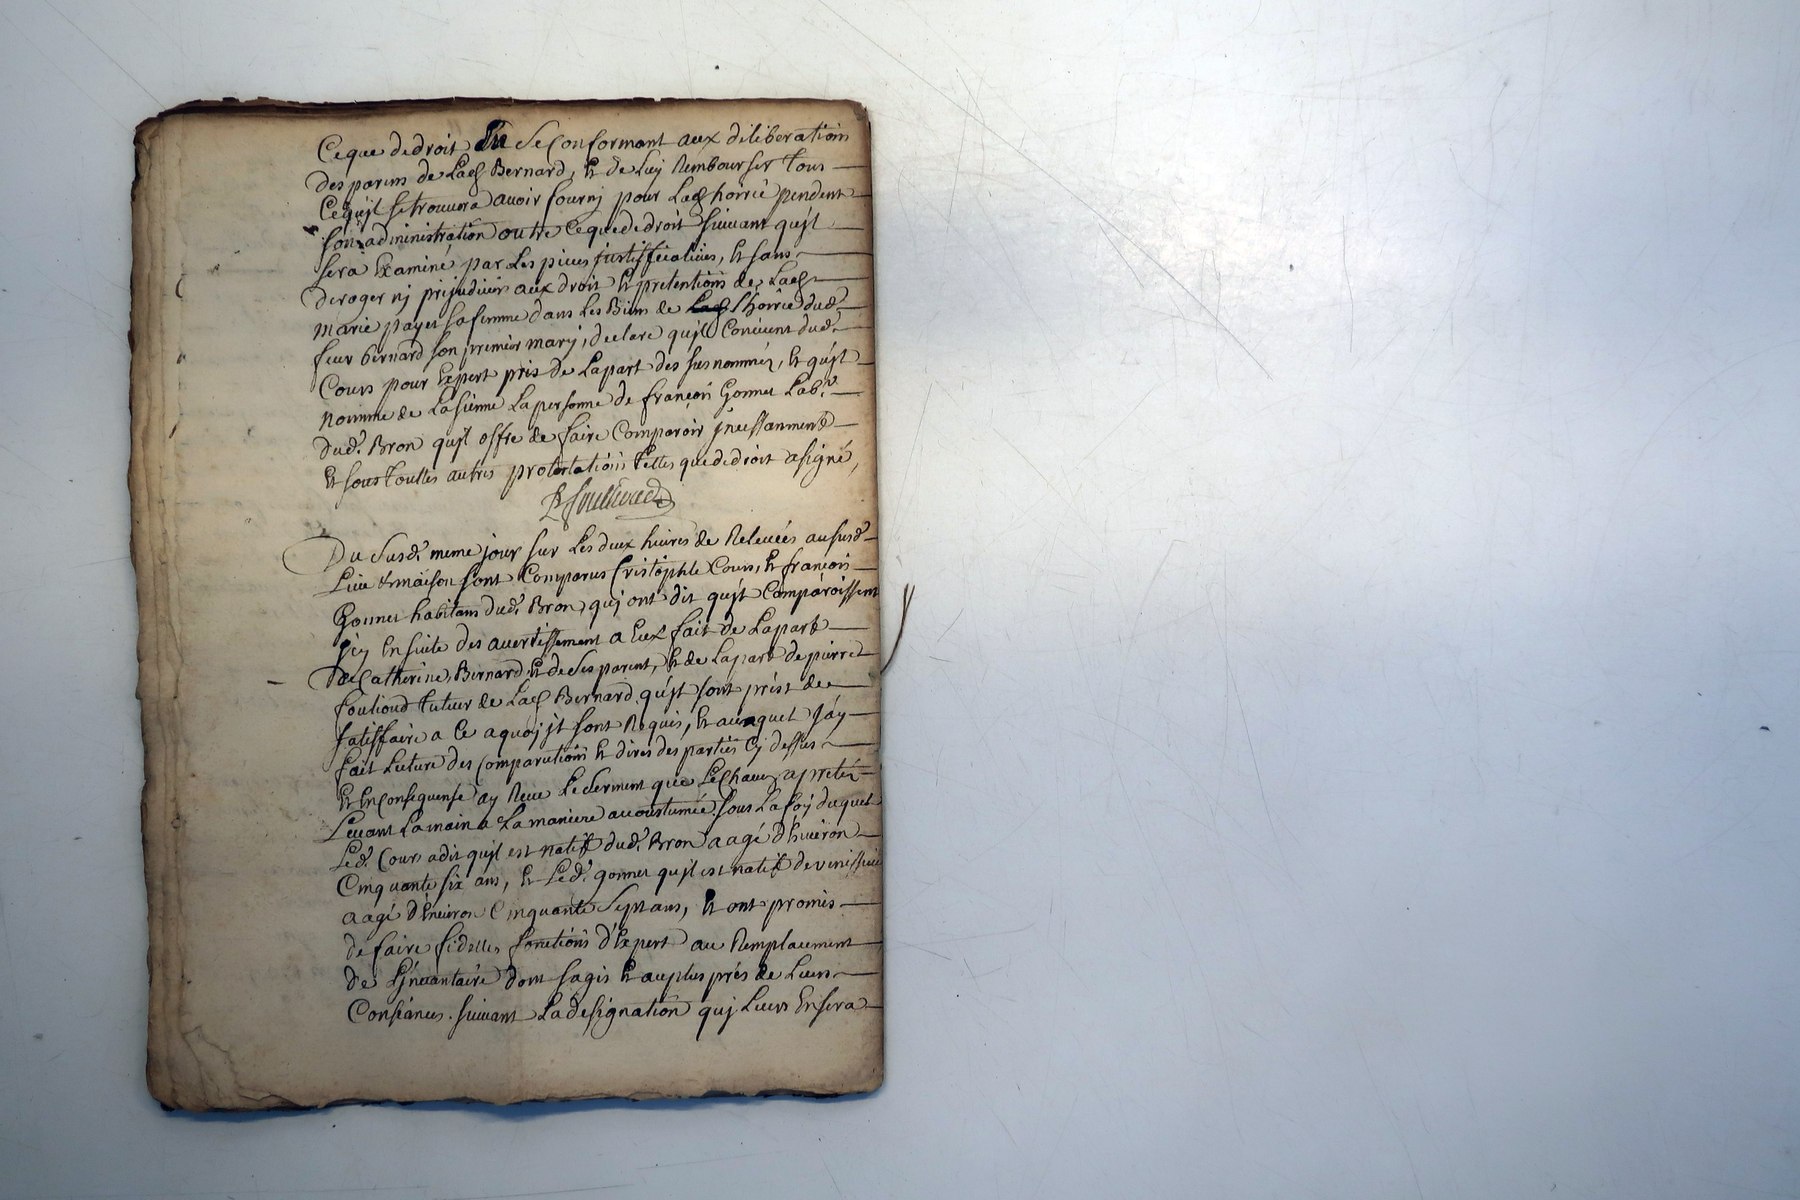 Ceque dedroit En Se Conformant aux deliberations
des parens de Lad Bernard, Et de Luy Rembourser tous
Cequil setrouvera avoir fourny pour Lad hoirie pendent
son administration outre Cequededroit suivant quil
sera Examiné par Les pieces justifficatives, Et sans
deroger nj prejudicier aux droit Et pretentions de Lad
marie payet sa femme dans Les Biens de L'hoirie dud.
sieur bernard son premier mary, declare quil Convient dud.
Cours pour Expert pris de Lapart des susnommés, Et quil
nomme de La sienne La personne de françois Gonnet Lab.r
dud. Bron quil offre de faire Comparoir jncessamment
Et sous touttes autres protestations telles quededroit asigné,
Du Susd. meme jour sur Les deux heures de Relevées aususd.
Lieu & maison sont Comparus Cristophle Cours, Et françois
Gonnet habitans dud. Bron, quj ont dit quil Comparoissent
jcy Ensuite des avertissement a Eux fait de Lapart
de Catherine Bernard Et de Ses parent, Et de Lapart de pierre
fouilloud tuteur de Lad Bernard quil sont prêst de
satisffaire a Ce aquoj jl sont Requis, Et auxquel jay
fait Lecture des Comparutions Et dires des parties Cy dessus
Et En Consequense ay Receu Le Serment que Lechaun a pretéz
Levant Lamain a La maniere accoustumée sous La foy duquel
Led. Cours adit quil est natif dud. Bron aagé d'Environ
Cinquante six ans, Et Led. gonnet quil est natif de venissieu
aagé d'Environ Cinquante Sept ans, Et ont promis
de faire fidelles fonctions d'Expert au Remplacement
de L'jnvantaire dont sagis Et auplus prés de Leurs
Consiances. suivant La designation quj Leurs En sera